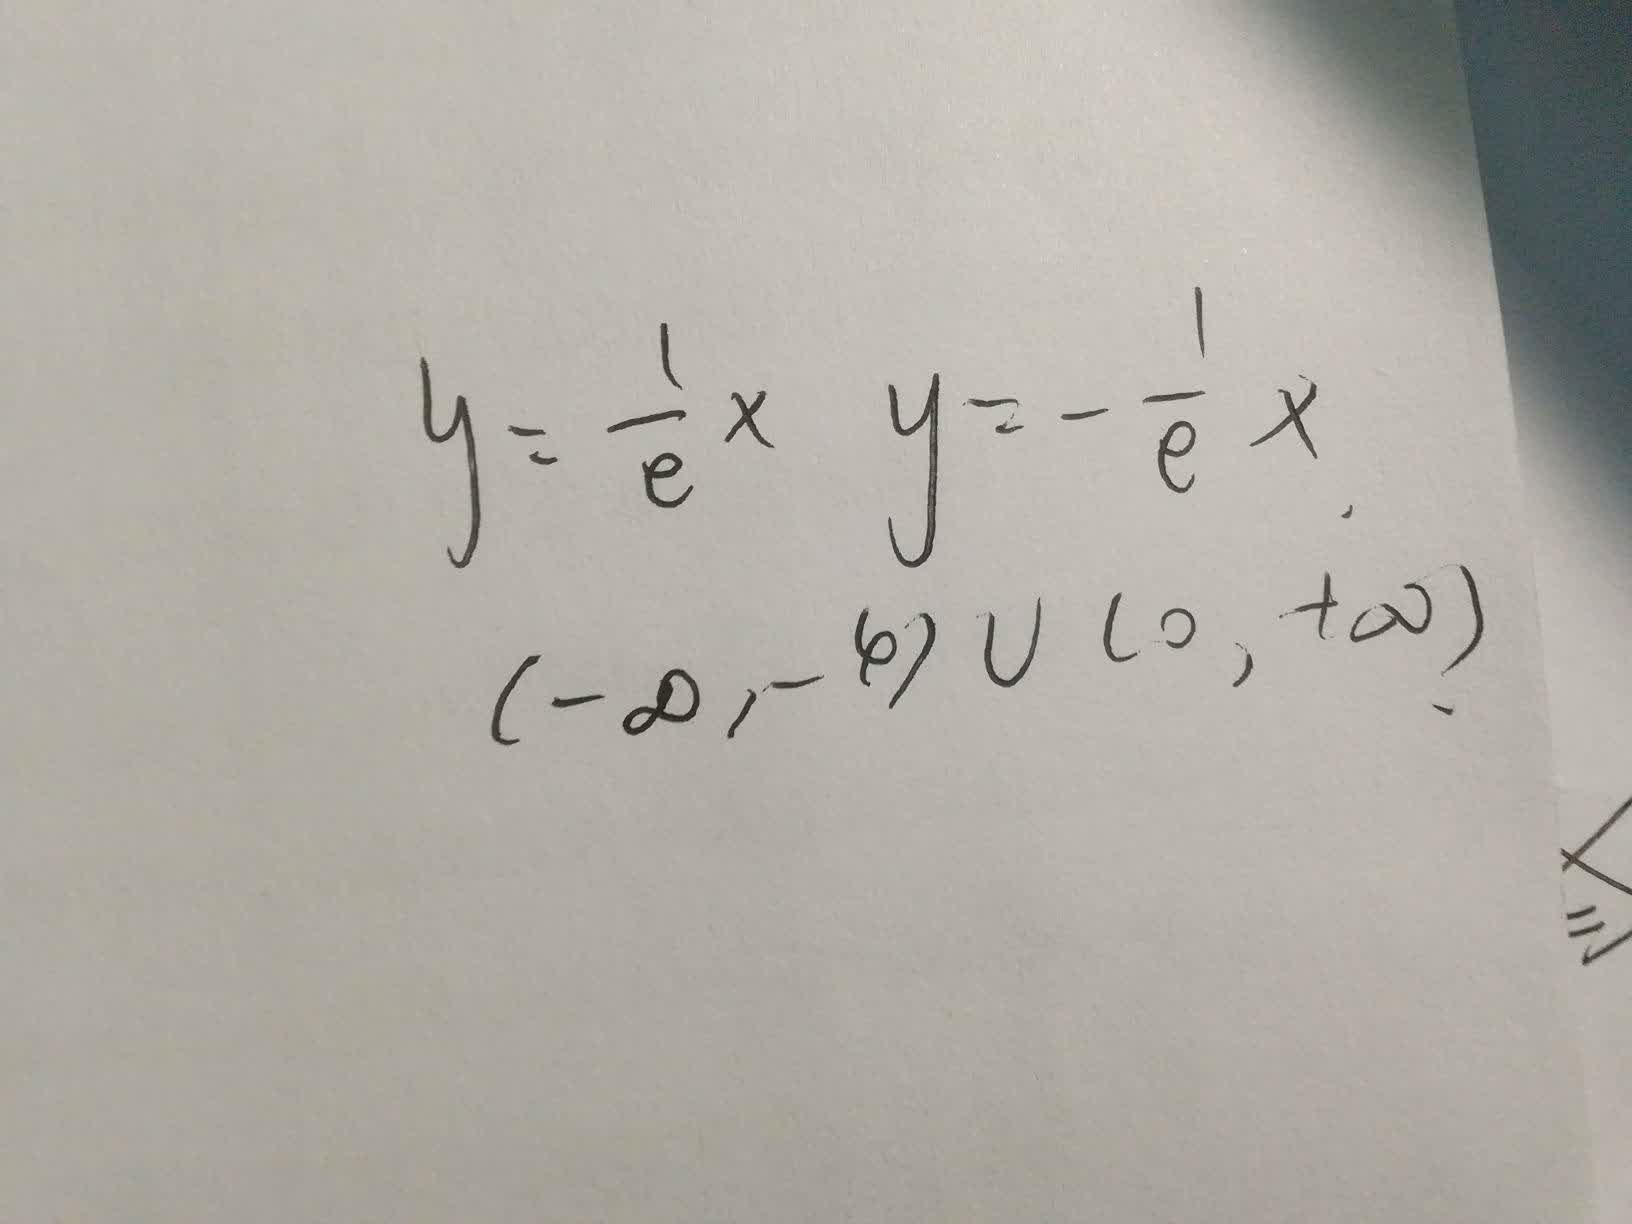 y = 1/e x y = - 1/e x .
(-∞, -4) ∪ (0, +∞)